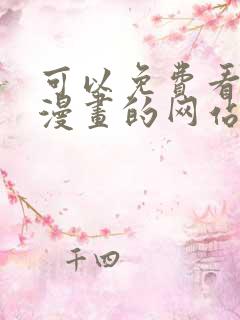 可以免费看
漫畫的网佔
千四